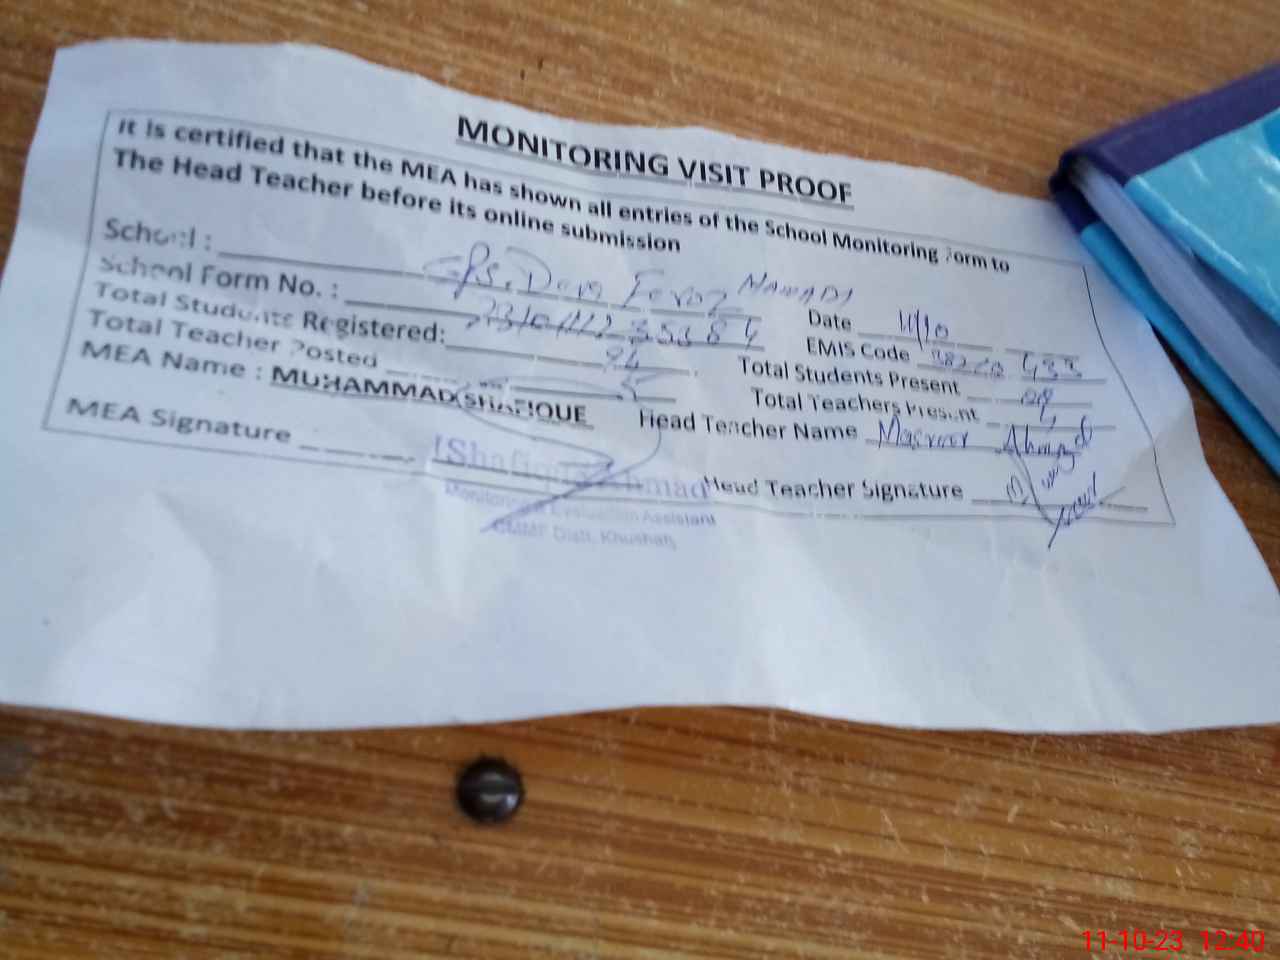 MONITORING VISIT PROOF
It is certified that the MEA has shown all entries of the School Monitoring Form to
The Head Teacher before its online submission
School : GPS. Dera Feroz NAWADI
School Form No. : Date 11/10
Total Students Registered: 94 EMIS Code 433
Total Teacher Posted 5 Total Students Present
MEA Name : MUHAMMAD SHAFIQUE Total Teachers Present
Head Teacher Name Masroor Ahmad
MEA Signature Head Teacher Signature
Shafique Ahmad
Monitoring & Evaluation Assistant
CMMF Distt. Khushab
11-10-23 12:40